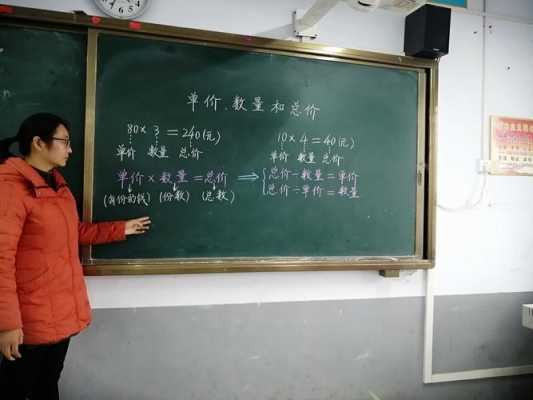 单价、数量和总价
80×3=240(元)
单价 数量 总价
10×4=40(元)
单价 数量 总价
单价×数量=总价
(每份的钱) (份数) (总数)
⇒ { 总价÷数量=单价
总价÷单价=数量